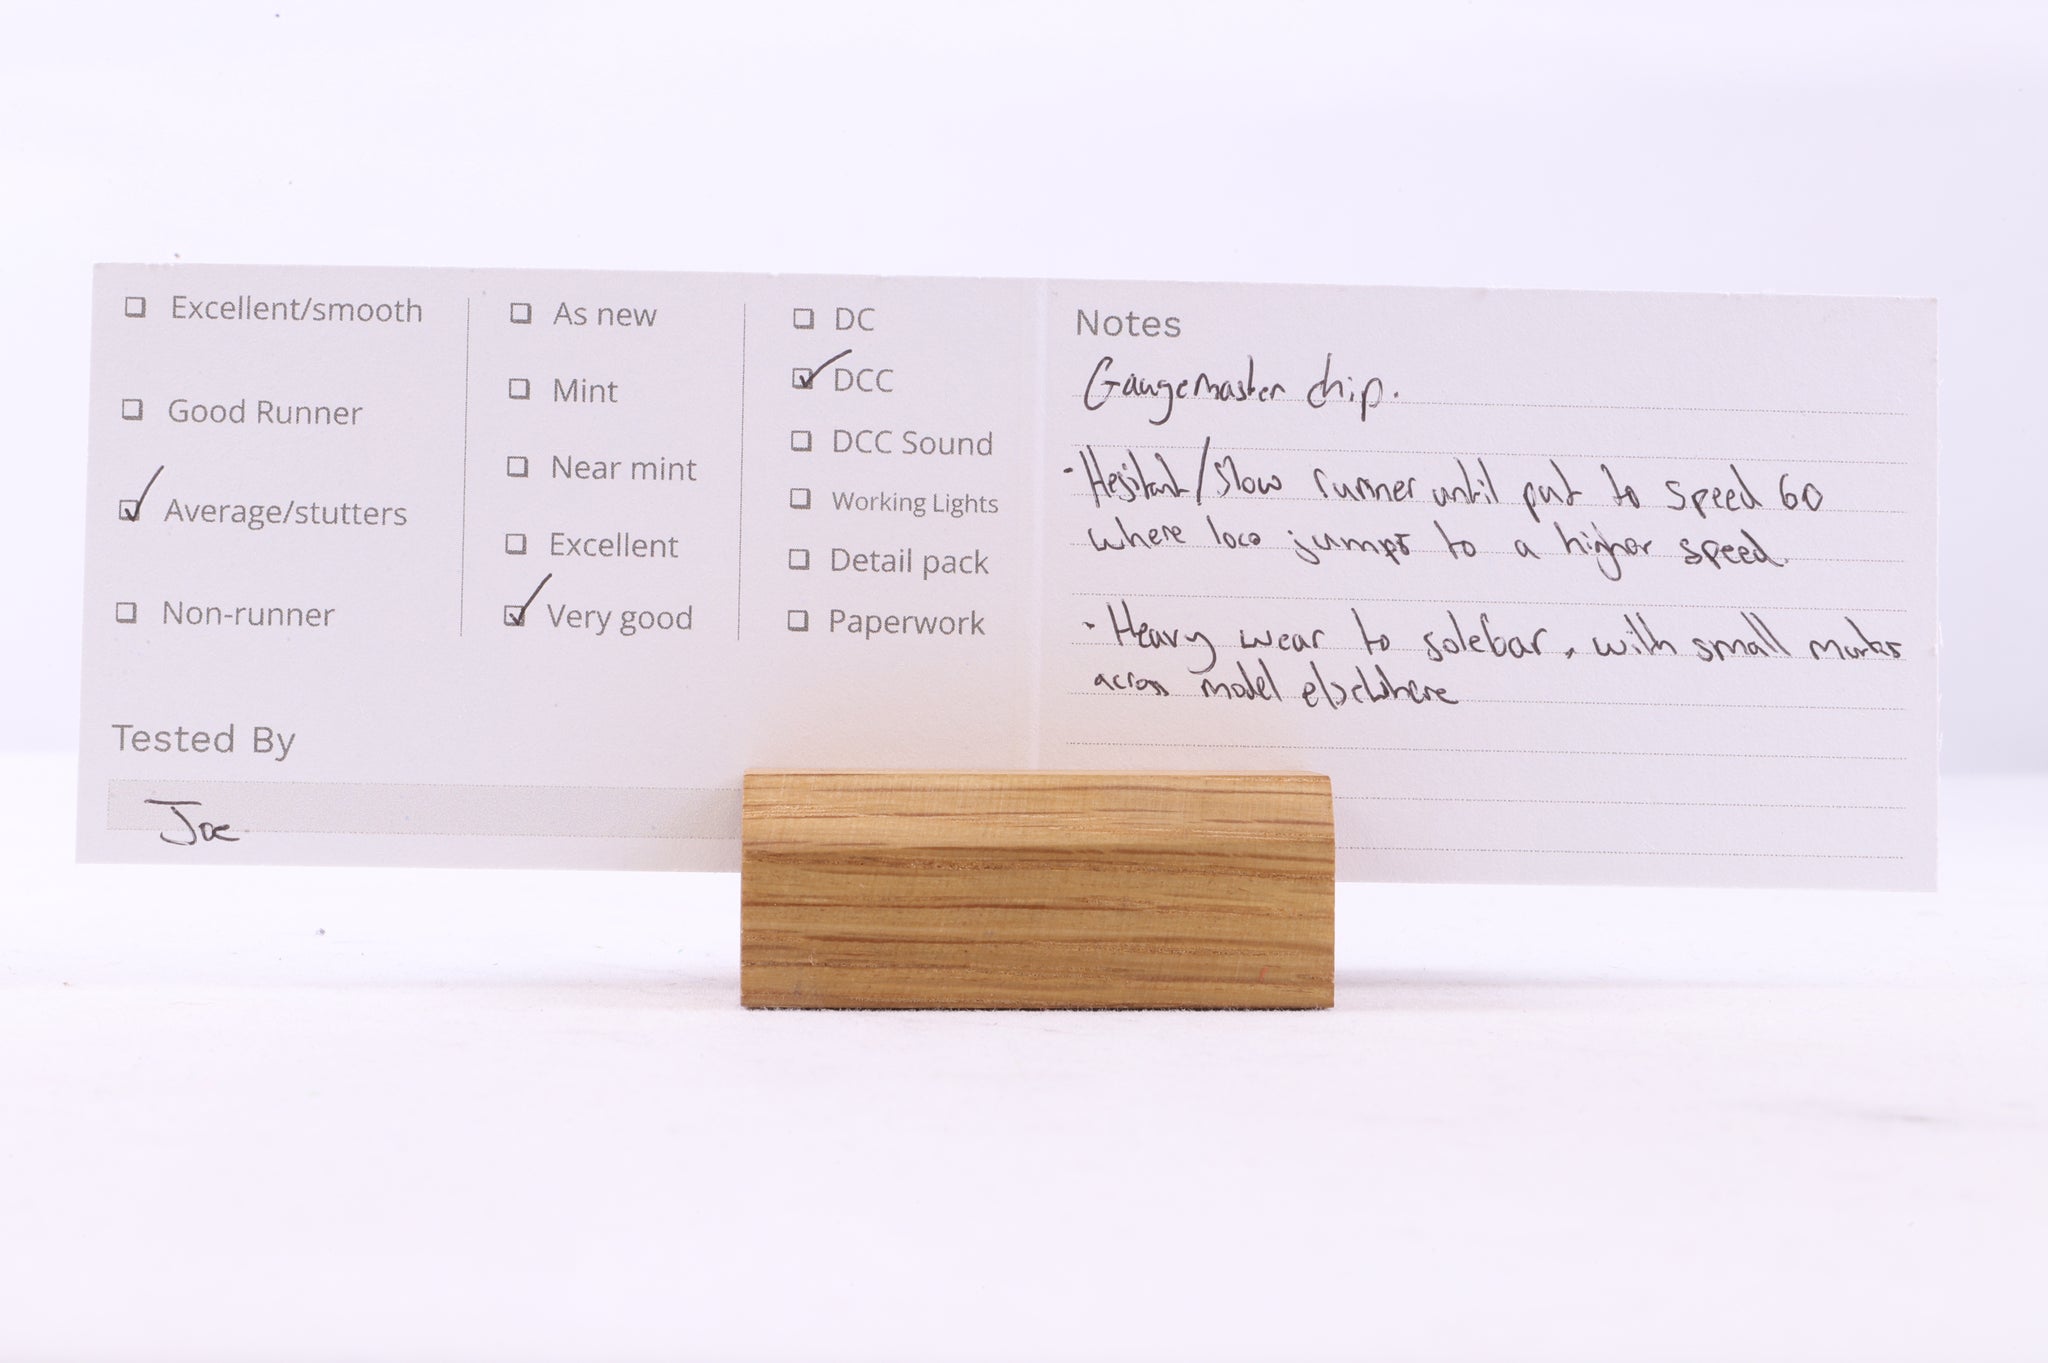 ☐ Excellent/smooth
☐ Good Runner
☑ Average/stutters
☐ Non-runner
☐ As new
☐ Mint
☐ Near mint
☐ Excellent
☑ Very good
☐ DC
☑ DCC
☐ DCC Sound
☐ Working Lights
☐ Detail pack
☐ Paperwork
Tested By
Joe
Notes
Gaugemaster chip.
- Hesitant/slow runner until put to speed 60
where loco jumps to a higher speed.
- Heavy wear to solebar, with small marks
across model elsewhere